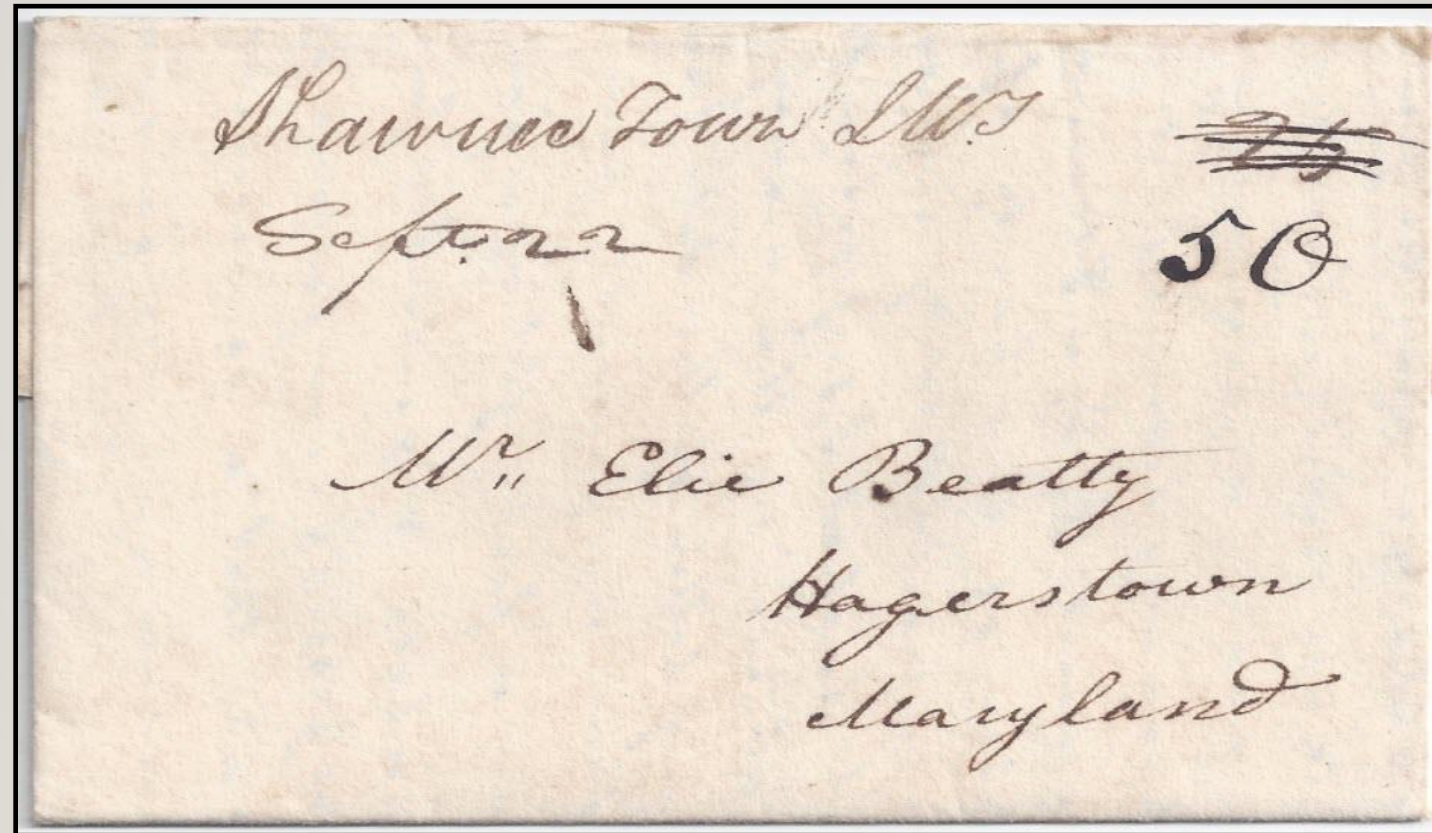 Shawnee Town I.W.T
25
Sept. 22
50
Mr. Elie Beatty
Hagerstown
Maryland